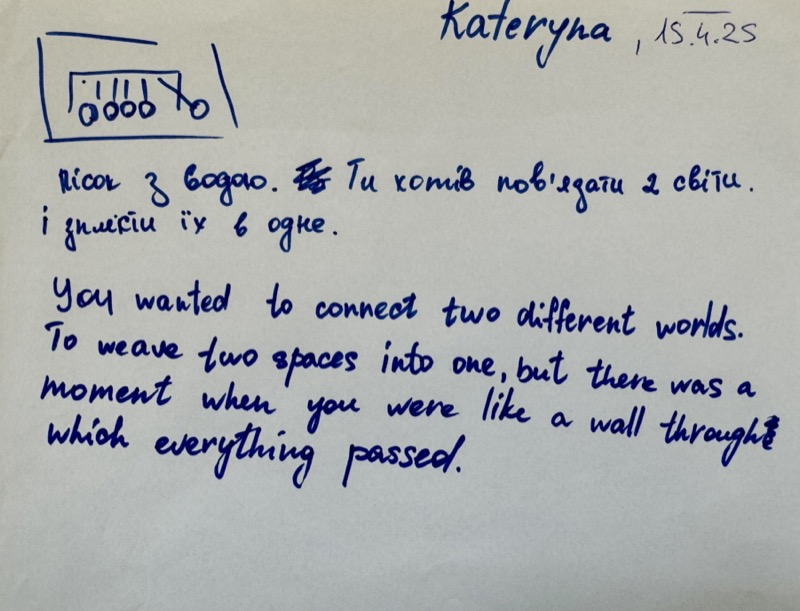 Kateryna, 15.4.25
пісок з водою. Ти хотів пов'язати 2 світи.
і зплести їх в одне.
You wanted to connect two different worlds.
To weave two spaces into one, but there was a
moment when you were like a wall through
which everything passed.